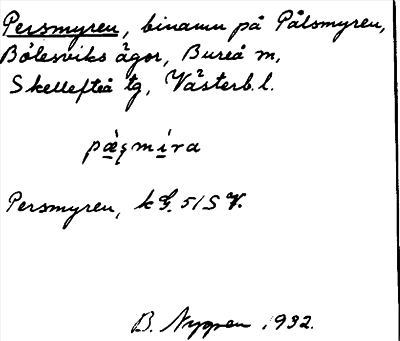 Persmyren, binamn på Pålsmyren,
Bölesviks ägor, Bureå m,
Skellefteå tg, Västerb. l.
pæ̀șmíra
Persmyren, k G. 51 S V.
B. Nygren 1932.